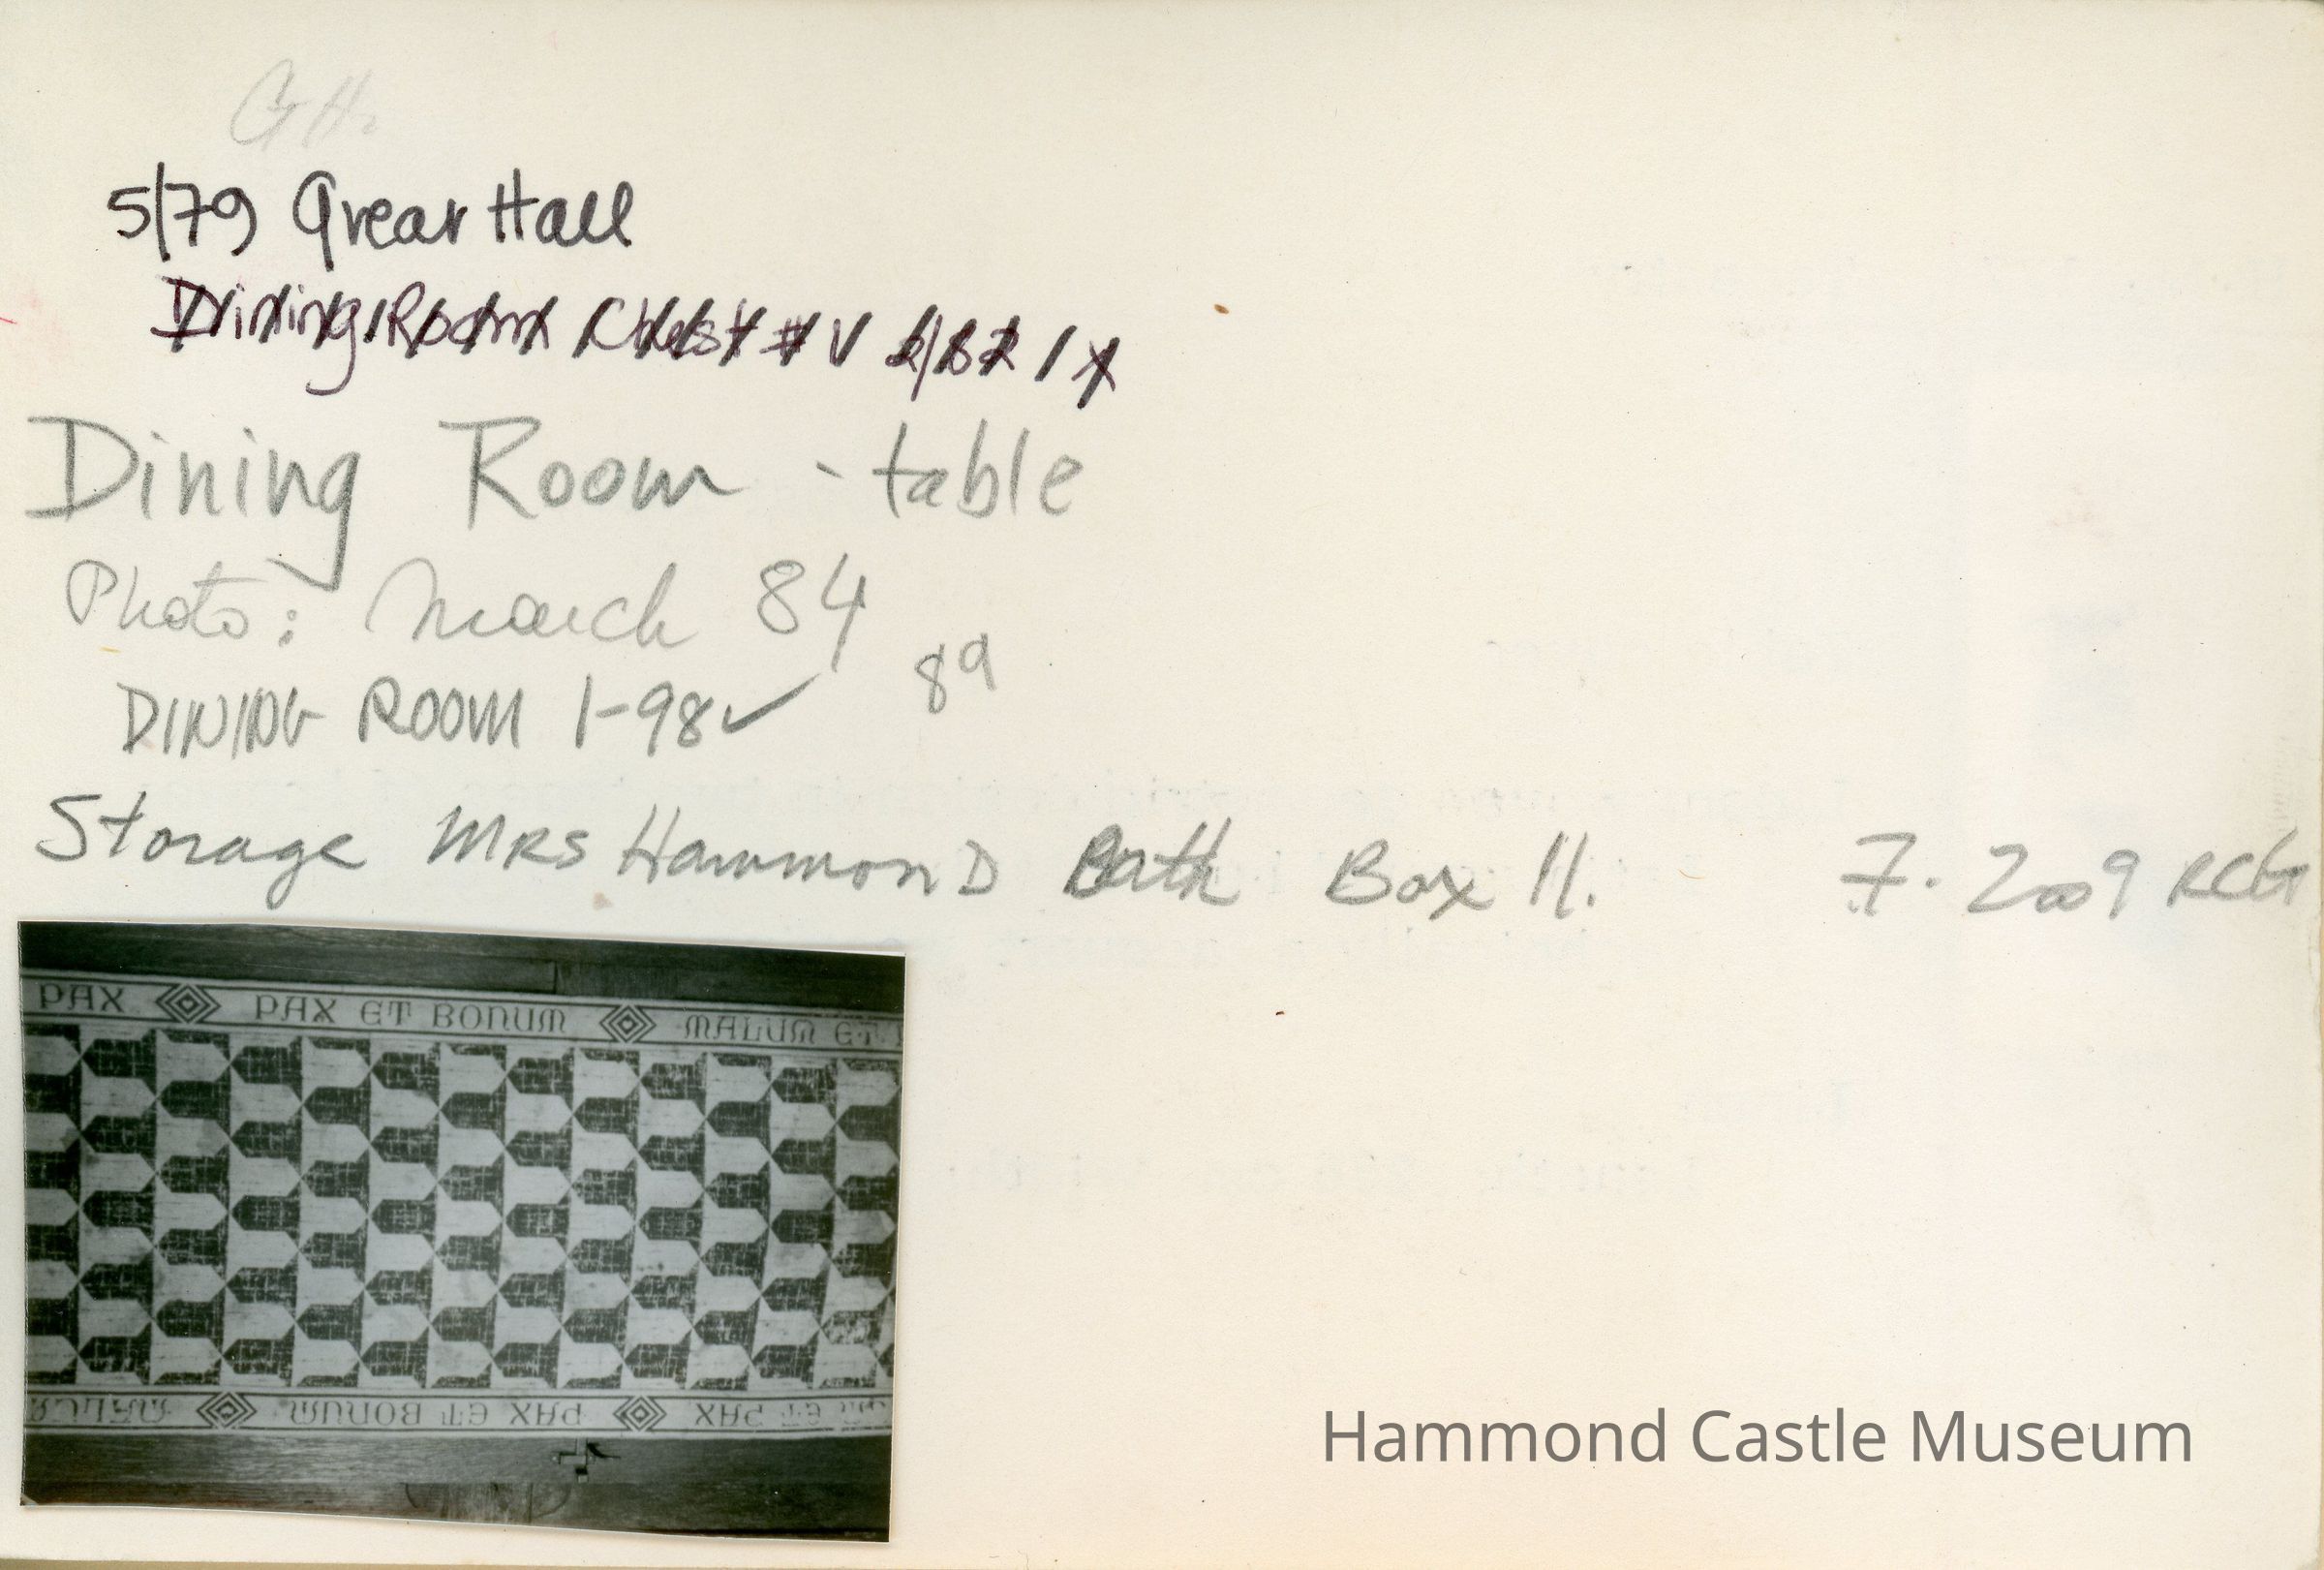 GH.
5/79 Great Hall
Dining Room Chest # V 2/82
Dining Room - table
Photo: March 84
89
DINING ROOM 1-98✓
Storage MRS HammonD Bath Box 11. 7. 2009 RCG
PAX PAX ET BONUM MALUM ET
PAX ET BONUM
ET PAX
Hammond Castle Museum